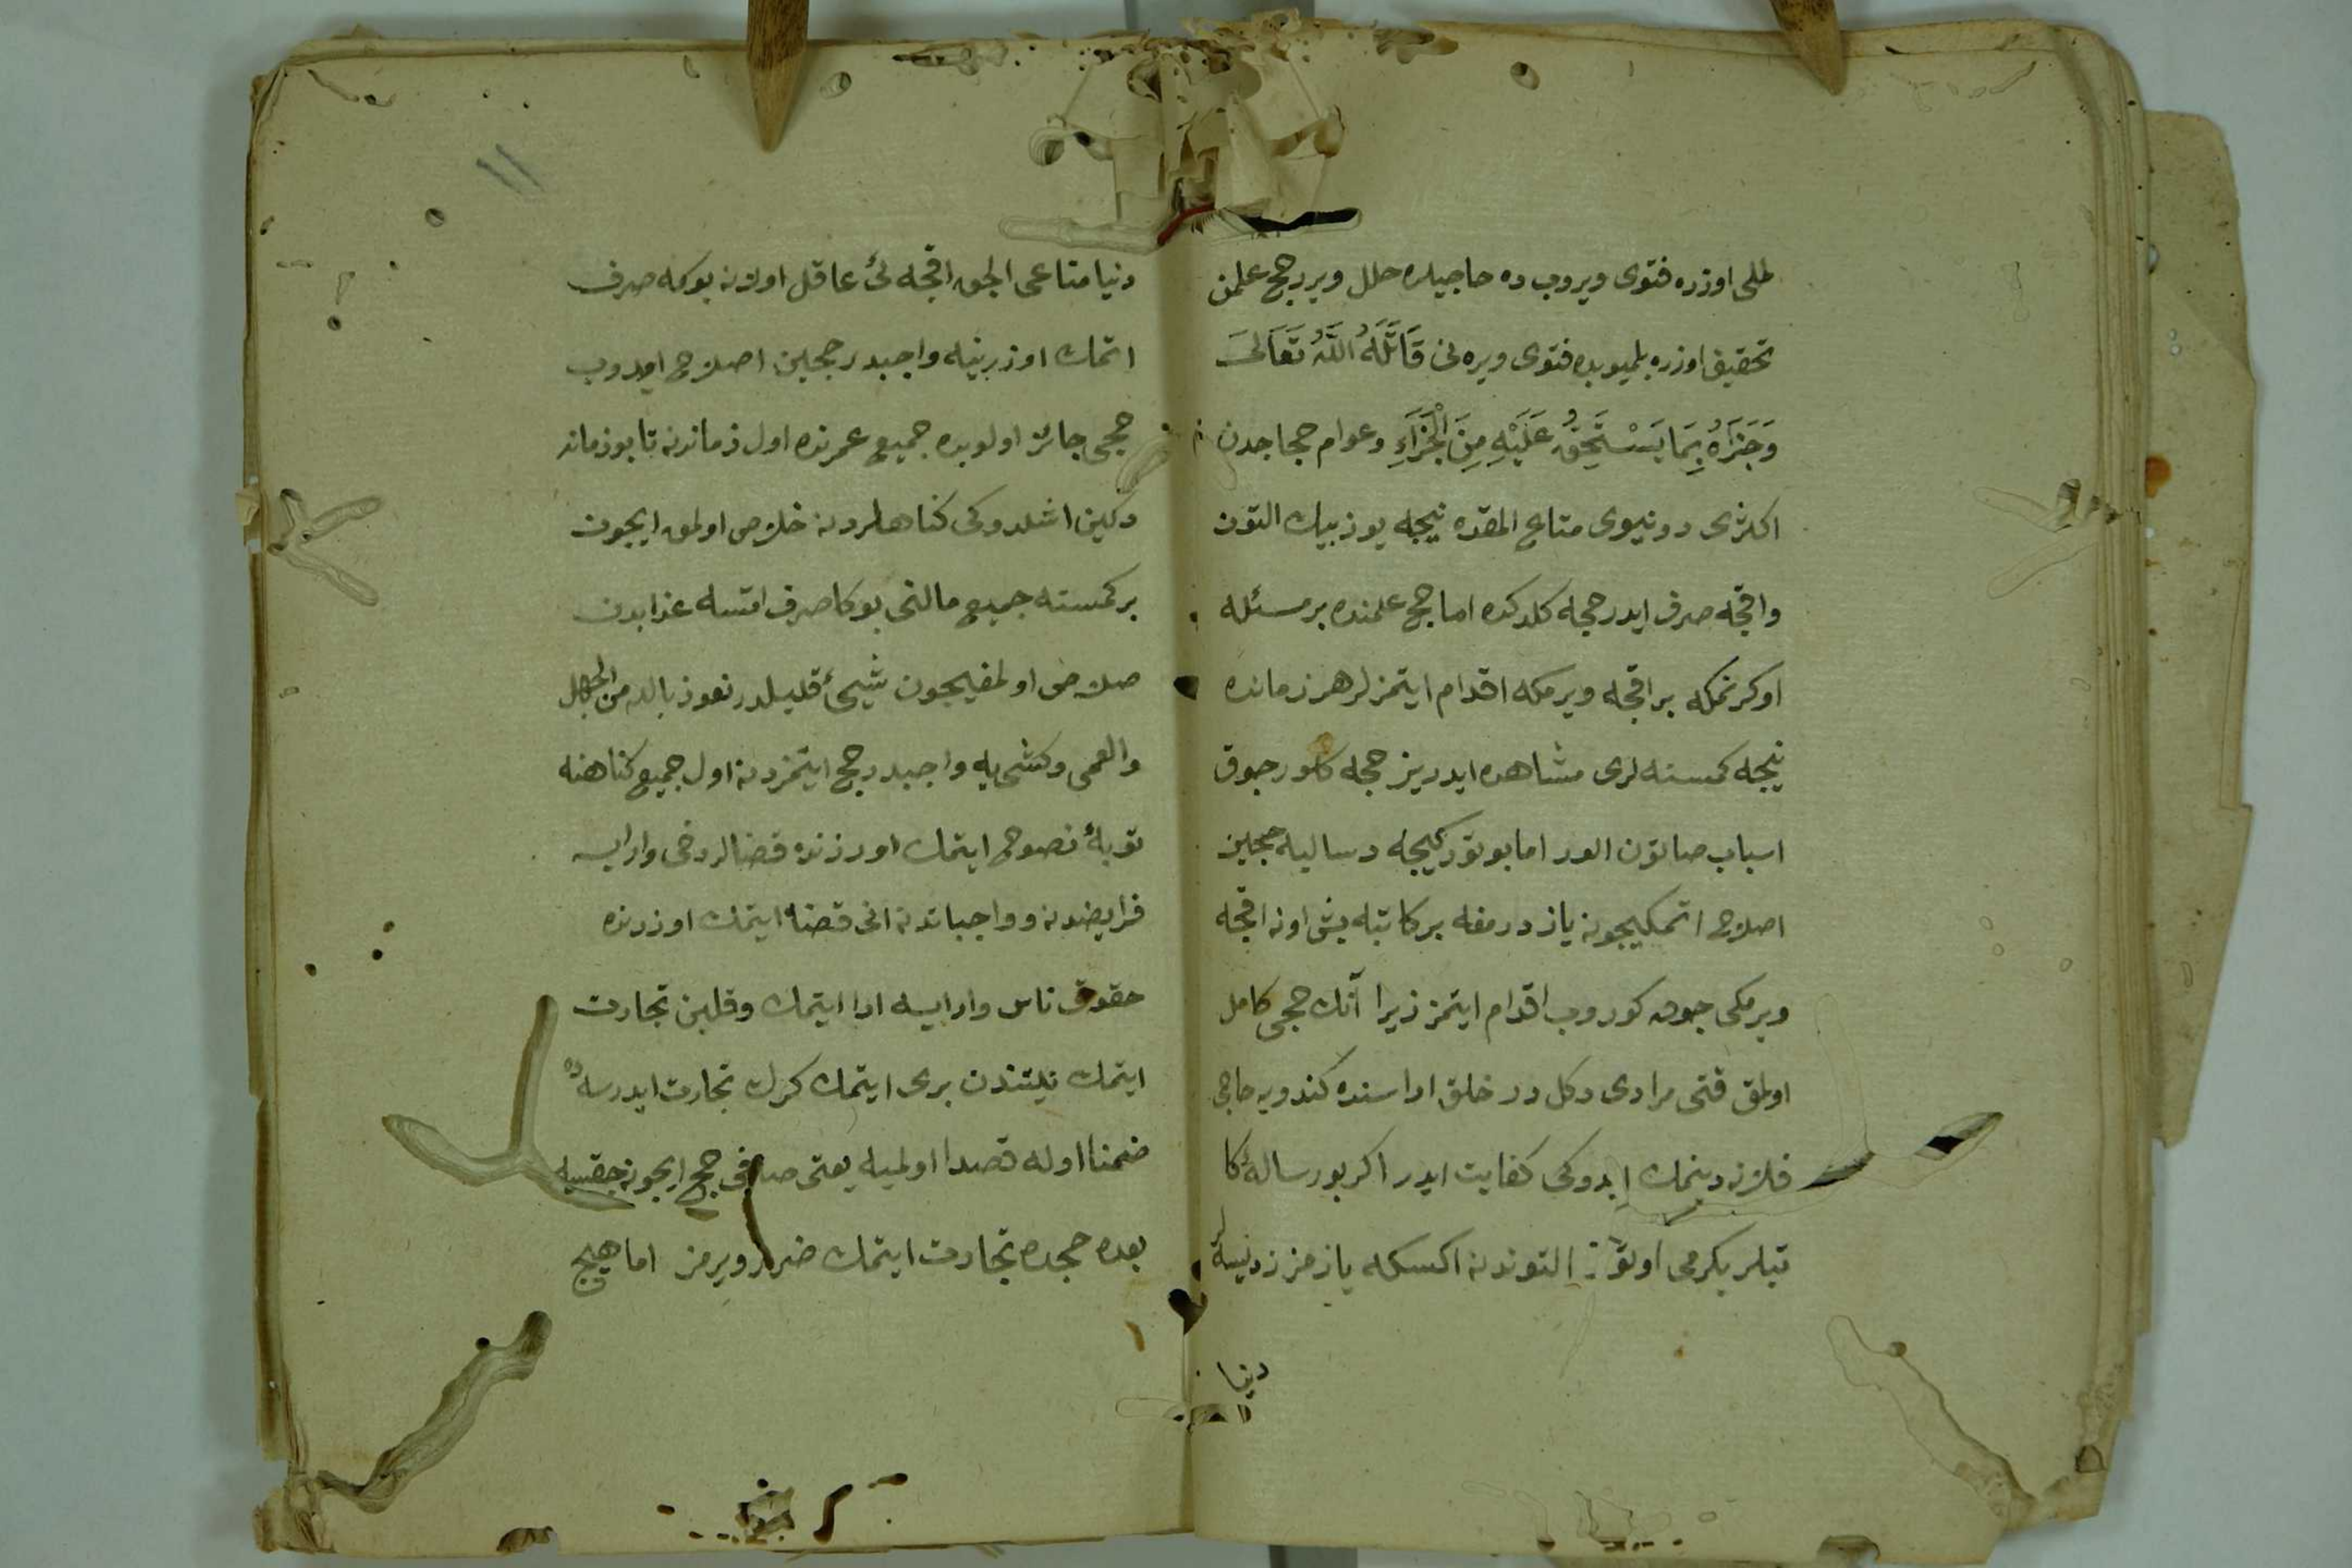 اوزره فتوى ويروب ده حاجيلره خلل ويرر حج علمن
تحقيق اوزره بلميوبده فتوى ويره نى قَاتَلَهُ اللَّهُ تَعَالَى
وَجَزَاهُ بِمَا يَسْتَحِقُّ عَلَيْهِ مِنَ الْجَزَاءِ وعوام حجاجدن
اكثرى دونيوى متاع المقده نيجه يوز بيك التون
واقچه صرف ايدر حجه كلدكده اما حج علمنده بر مسئله
اوكرنمكه بر اقچه ويرمكه اقدام ايتمزلر هر زمانده
نيجه كمسنه لرى مشاهده ايدريز حجه كلور چوق
اسباب صاتون الور اما بو توركيجه رساليه حجين
اصلاح اتمكيچون يازدرمغه بر كاتبه بش اون اقچه
ويرمكى چوق كوروب اقدام ايتمز زيرا آنك حجى كامل
اولمق قتى مرادى دكل در خلق اراسنده كندويه حاجى
فلان دينمك ايدوكى كفايت ايدر اكر بو رساله كا
تبلر يكرمى اوتوز التوندن اكسكه يازمز زديسه لر
دنيا
١١
دنيا متاعى الجق اقچه لئ عاقل اولان بوكه صرف
اتمك اوزرينه واجبدر حجين اصلاح ايدوب
حجى جائز اولوبده جميع عمرنده اول زماندن تا بو زمانه
دكين اشلدوكى كناهلردن خلاص اولمق ايچون
بر كمسنه جميع مالنى بوكا صرف اتسه عذابدن
خلاص اولمقيچون شيئ قليلدر نعوذ بالله من الجهل
والعمى وكشى يه واجبدر حج ايتمزدن اول جميع كناهنه
توبۀ نصوح ايتمك اوزرنده قضالر دخى وارايسه
فرايضدن وواجباتدن انى قضا ايتمك اوزرنده
حقوق ناس وارايسه ادا ايتمك وقلبن تجارت
ايتمك نيتندن برى ايتمك كرك تجارت ايدرسه ده
ضمنا اوله قصدا اولميه يعنى صافى حج ايچون چقيسه
بعده حجده تجارت ايتمك ضرر ويرمز اما هيچ